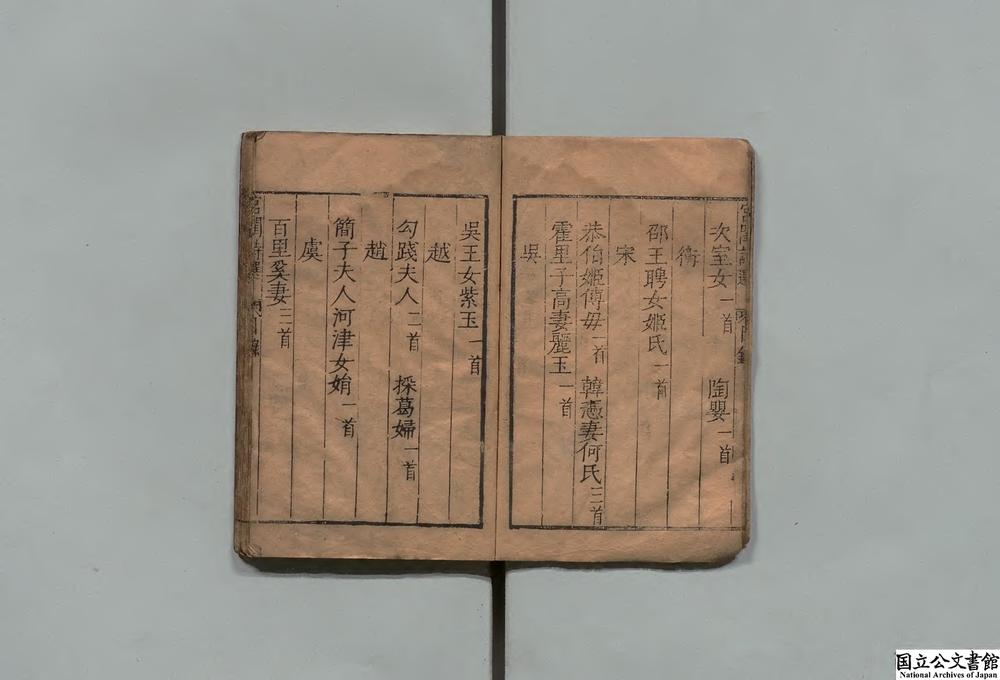 次室女一首　陶嬰一首
衛
邵王聘女姬氏一首
宋
恭伯姬傅母一首　韓憑妻何氏三首
霍里子高妻麗玉一首
吳
吳王女紫玉一首
越
勾踐夫人二首　採葛婦一首
趙
簡子夫人河津女娟一首
虞
百里奚妻三首
国立公文書館
National Archives of Japan